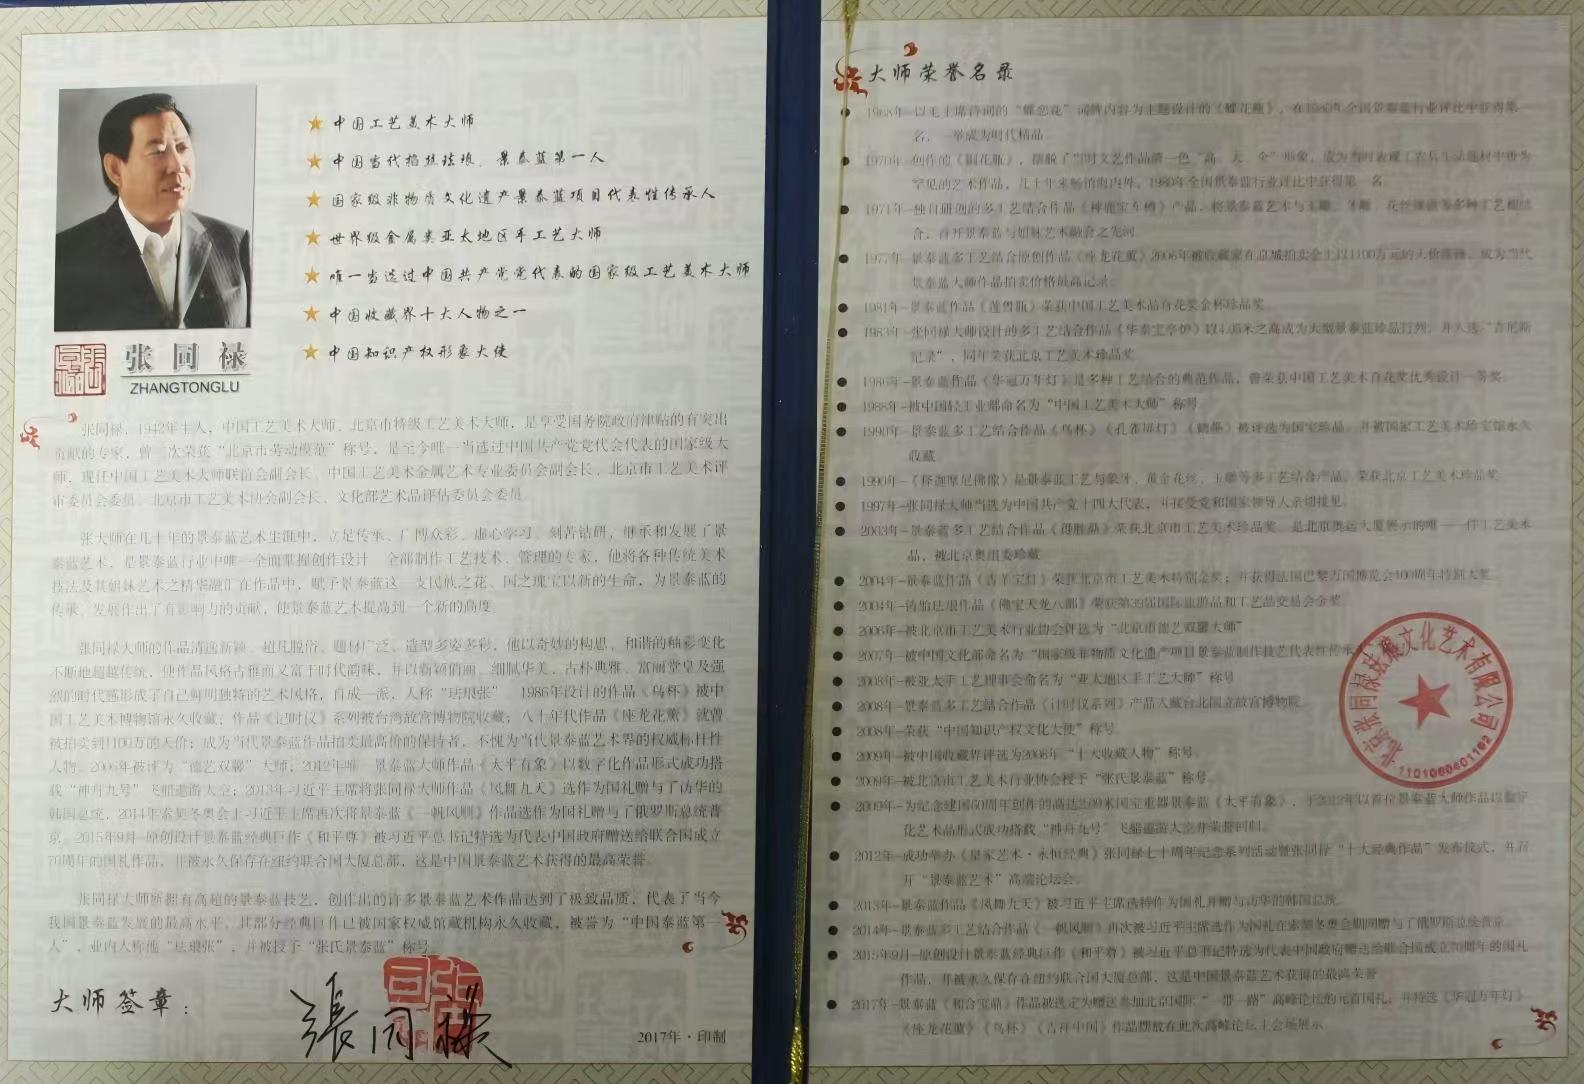 中国工艺美术大师
中国当代掐丝珐琅、景泰蓝第一人
国家级非物质文化遗产景泰蓝项目代表性传承人
世界级金属类亚太地区手工艺大师
唯一当选过中国共产党党代表的国家级工艺美术大师
中国收藏界十大人物之一
中国知识产权形象大使
张同禄
ZHANGTONGLU
张同禄，1942年生人，中国工艺美术大师、北京市特级工艺美术大师，是享受国务院政府津贴的有突出
贡献的专家，曾三次荣获“北京市劳动模范”称号，是至今唯一当选过中国共产党党代会代表的国家级大
师，现任中国工艺美术大师联谊会副会长、中国工艺美术金属艺术专业委员会副会长、北京市工艺美术评
审委员会委员、北京市工艺美术协会副会长、文化部艺术品评估委员会委员。
张大师在几十年的景泰蓝艺术生涯中，立足传承、广博众彩、虚心学习、刻苦钻研，继承和发展了景
泰蓝艺术，是景泰蓝行业中唯一全面掌握创作设计、全部制作工艺技术、管理的专家，他将各种传统美术
技法及其姐妹艺术之精华融汇在作品中，赋予景泰蓝这一支民族之花、国之瑰宝以新的生命，为景泰蓝的
传承、发展作出了有影响力的贡献，使景泰蓝艺术提高到一个新的高度。
张同禄大师的作品清逸新颖、超凡脱俗、题材广泛、造型多姿多彩，他以奇妙的构思、和谐的釉彩变化
不断地超越传统，使作品风格古雅而又富于时代韵味，并以新颖俏丽、细腻华美、古朴典雅、富丽堂皇及强
烈的时代感形成了自己鲜明独特的艺术风格，自成一派，人称“珐琅张”。1986年设计的作品《鸟杯》被中
国工艺美术博物馆永久收藏；作品《记时仪》系列被台湾故宫博物院收藏；八十年代作品《座龙花薰》就曾
被拍卖到1100万的天价；成为当代景泰蓝作品拍卖最高价的保持者，不愧为当代景泰蓝艺术界的权威标杆性
人物。2006年被评为“德艺双馨”大师；2012年唯一景泰蓝大师作品《太平有象》以数字化作品形式成功搭
载“神舟九号”飞船遨游太空；2013年习近平主席将张同禄大师作品《凤舞九天》选作为国礼赠与了访华的
韩国总统，2014年索契冬奥会上习近平主席再次将景泰蓝《一帆风顺》作品选作为国礼赠与了俄罗斯总统普
京。2015年9月-原创设计景泰蓝经典巨作《和平尊》被习近平总书记特选为代表中国政府赠送给联合国成立
70周年的国礼作品，并被永久保存在纽约联合国大厦总部，这是中国景泰蓝艺术获得的最高荣誉。
张同禄大师所拥有高超的景泰蓝技艺，创作出的许多景泰蓝艺术作品达到了极致品质，代表了当今
我国景泰蓝发展的最高水平，其部分经典巨作已被国家权威馆藏机构永久收藏，被誉为“中国泰蓝第一
人”，业内人称他“珐琅张”，并被授予“张氏景泰蓝”称号。
大师签章：
張同禄
2017年·印制
大师荣誉名录
1968年-以毛主席诗词的“蝶恋花”词牌内容为主题设计的《蝶花瓶》，在1980年全国景泰蓝行业评比中获得第一
名，一举成为时代精品
1970年-创作的《铜花瓶》，摆脱了当时文艺作品清一色“高、大、全”形象，成为当时表现工农兵生活题材中极为
罕见的艺术作品，几十年来畅销海内外，1980年全国景泰蓝行业评比中获得第一名
1971年-独自研创的多工艺结合作品《神鹿宝车樽》产品，将景泰蓝艺术与玉雕、牙雕、花丝镶嵌等多种工艺相结
合，首开景泰蓝与姐妹艺术融合之先河
1977年-景泰蓝多工艺结合原创作品《座龙花薰》2006年被收藏家在京城拍卖会上以1100万元的天价落锤，成为当代
景泰蓝大师作品拍卖价格最高记录。
1981年-景泰蓝作品《莲雪瓶》荣获中国工艺美术品百花奖金杯珍品奖
1983年-张同禄大师设计的多工艺结合作品《华泰宝亭炉》以4.05米之高成为大型景泰蓝珍品行列，并入选“吉尼斯
纪录”，同年荣获北京工艺美术珍品奖
1986年-景泰蓝作品《华冠万年灯》是多种工艺结合的典范作品，曾荣获中国工艺美术百花奖优秀设计一等奖
1988年-被中国轻工业部命名为“中国工艺美术大师”称号
1990年-景泰蓝多工艺结合作品《鸟杯》《孔雀屏灯》《鹤鼎》被评选为国宝珍品，并被国家工艺美术珍宝馆永久
收藏
1990年-《释迦摩尼佛像》是景泰蓝工艺与象牙、黄金花丝、玉雕等多工艺结合产品，荣获北京工艺美术珍品奖
1997年-张同禄大师当选为中国共产党十四大代表，并接受党和国家领导人亲切接见
2003年-景泰蓝多工艺结合作品《得胜鼎》荣获北京市工艺美术珍品奖，是北京奥运大厦展示的唯一一件工艺美术
品，被北京奥组委珍藏
2004年-景泰蓝作品《吉羊宝灯》荣获北京市工艺美术特别金奖；并获得法国巴黎万国博览会100周年特别大奖
2004年-铸胎珐琅作品《佛宝天龙八部》荣获第39届国际旅游品和工艺品交易会金奖
2006年-被北京市工艺美术行业协会评选为“北京市德艺双馨大师”
2007年-被中国文化部命名为“国家级非物质文化遗产项目景泰蓝制作技艺代表性传承
2008年-被亚太手工艺理事会命名为“亚太地区手工艺大师”称号
2008年-景泰蓝多工艺结合作品《计时仪系列》产品入藏台北国立故宫博物院
2008年-荣获“中国知识产权文化大使”称号。
2009年-被中国收藏界评选为2008年“十大收藏人物”称号。
2009年-被北京市工艺美术行业协会授予“张氏景泰蓝”称号。
2009年-为纪念建国60周年创作的高达2.09米国宝重器景泰蓝《太平有象》，于2012年以首位景泰蓝大师作品以数字
化艺术品形式成功搭载“神舟九号”飞船遨游太空并荣誉回归。
2012年-成功举办《皇家艺术·永恒经典》张同禄七十周年纪念系列活动暨张同禄“十大经典作品”发布仪式，并召
开“景泰蓝艺术”高端论坛会。
2013年-景泰蓝作品《凤舞九天》被习近平主席选特作为国礼并赠与访华的韩国总统
2014年-景泰蓝多工艺结合作品《一帆风顺》再次被习近平主席选作为国礼在索契冬奥会期间赠与了俄罗斯总统普京
2015年9月-原创设计景泰蓝经典巨作《和平尊》被习近平总书记特选为代表中国政府赠送给联合国成立70周年的国礼
作品，并被永久保存在纽约联合国大厦总部，这是中国景泰蓝艺术获得的最高荣誉
2017年-景泰蓝《和合宝鼎》作品被选定为赠送参加北京国际“一带一路”高峰论坛的元首国礼；并特选《华冠万年灯》
《座龙花薰》《鸟杯》《吉祥中国》作品摆放在此次高峰论坛主会场展示
北京张同禄珐琅文化艺术有限公司
1101080401162